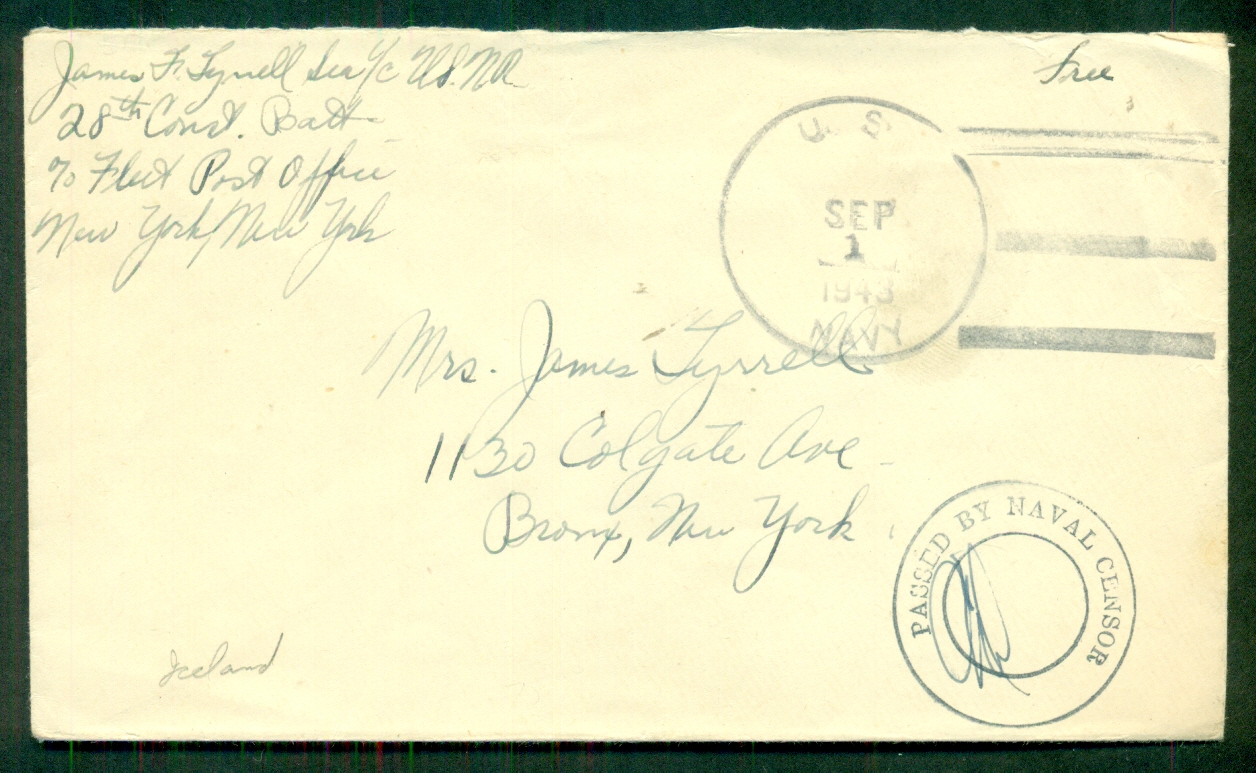 James F. Tyrrell Sea 1/c U.S.N.R.
28th Const. Batt
c/o Fleet Post Office
New York, New York
Free
U. S.
SEP
1
1943
NAVY
Mrs. James Tyrrell
1130 Colgate Ave
Bronx, New York
PASSED BY NAVAL CENSOR
Iceland